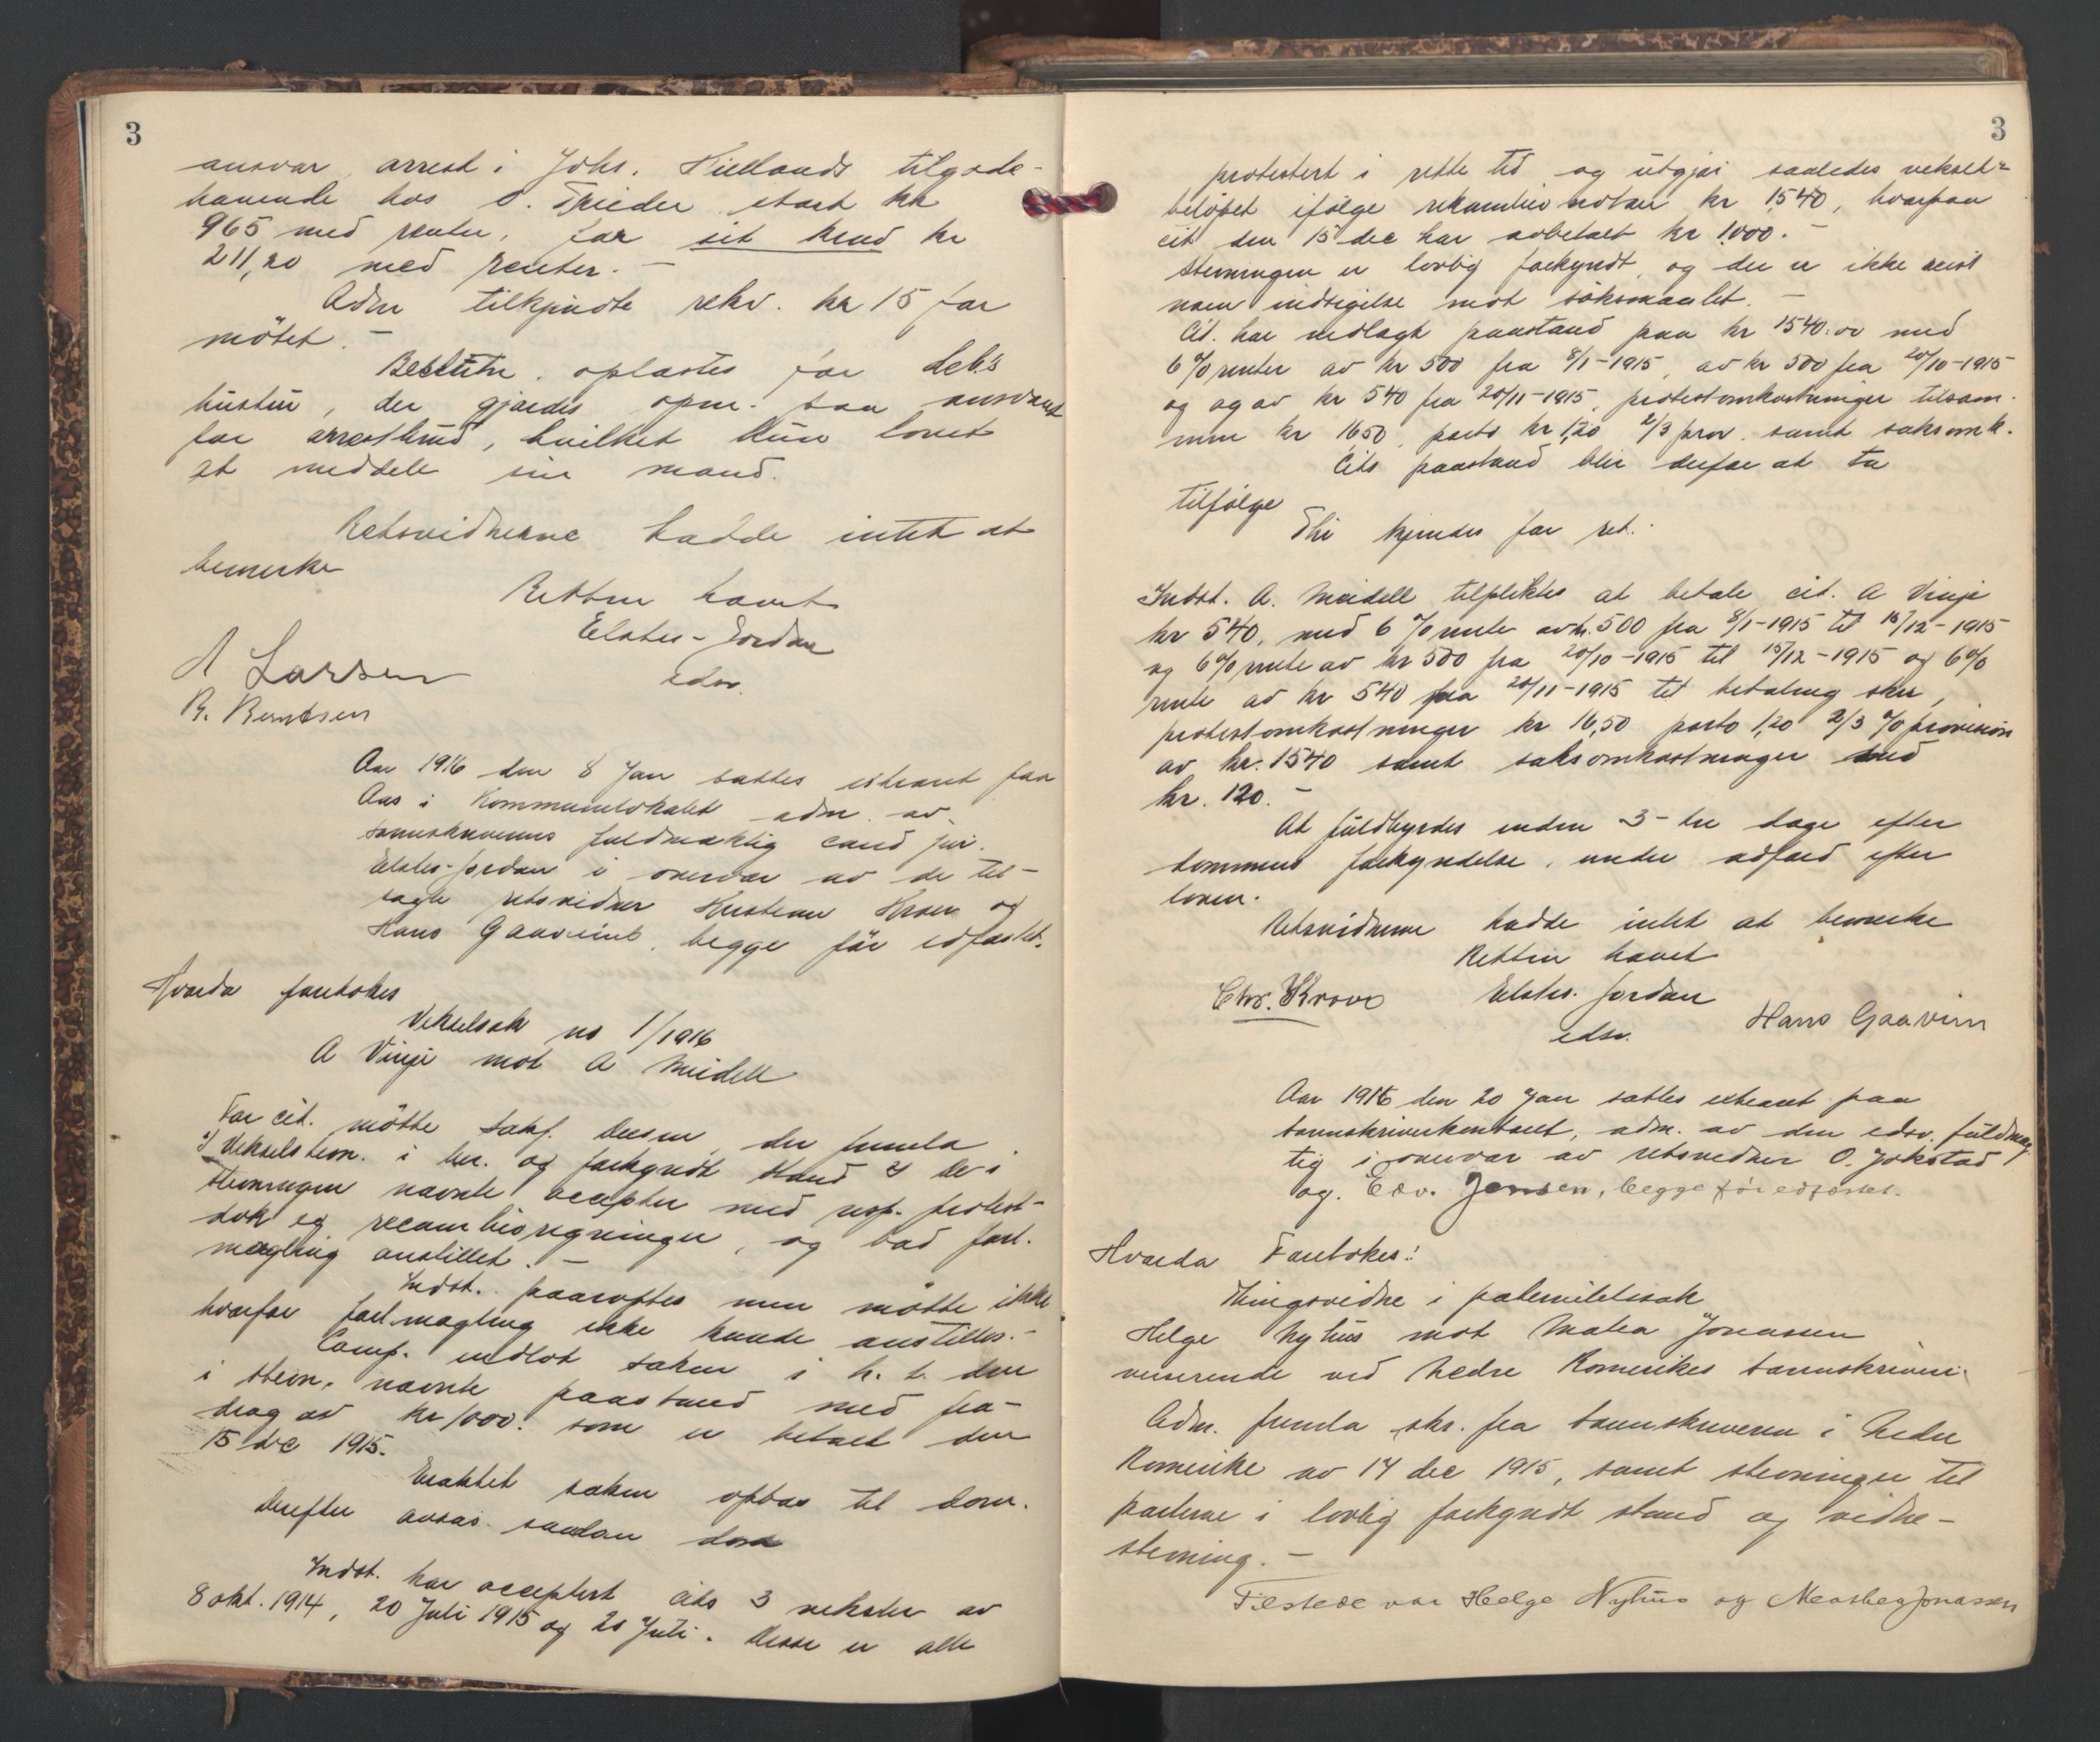 3
ansvar, arrest i Johs. Kiellands tilgode-
havende hos O. stort kr
965 med renter, for sit krav kr
211,20 med renter. —
Adm tilkjendte rekv. kr 15 for
mötet. —
Beslutn. oplæstes for deb.s
hustru, der gjordes opm. paa ansvaret
for arrestbrud, hvilket hun lovet
at meddele sin mand.
Retsvidnerne hadde intet at
bemerke
Retten hævet
Elster-Jordan
edsv.
A Larsen
R. Berntsen
Aar 1916 den 8 Jan sattes extraret paa
Aas i Kommunelokalet adm. av
sorenskriverens fuldmæktig cand jur.
Elster-Jordan i overvær av de til-
sagte retsvidner Kristian Kroer og
Hans Gaaveim, begge för edfæstet.
Hvorda foretokes
Vekselsak no 1/1916
A Vinje mot A Meidell
For cit. mötte sakf. der fremla
1) Vekselstevn. i ber. og forkyndt stand 2) de i
stevningen nævnte accepter med resp. protest-
dok og recambioregninger, og bad forl.
mægling anstillet. —
Indst. paaroptes men mötte ikke
hvorfor forl.mægling ikke kunde anstilles. —
Comp. indlot saken i h. t. den
i stevn. nævnte paastand med fra-
drag av kr 1000. som er betalt den
15 dec 1915.
Eraktet saken optas til dom.
Derefter avsas saadan dom
Indst. har acceptert cits 3 veksler av
8 okt. 1914, 20 Juli 1915 og 20 Juli. Disse er alle
3
protestert i rette tid og utgjör saaledes veksel=
belöpet ifölge rekambionotaer kr 1540, hvorpaa
cit den 15 dec har avbetalt kr 1000. —
Stevningen er lovlig forkyndt, og der er ikke reist
noen indsigelse mot söksmaalet. —
Cit. har nedlagt paastand paa kr 1540.00 med
6 % renter av kr 500 fra 8/1-1915, av kr 500 fra 20/10-1915
og og av kr 540 fra 20/11-1915, protestomkostninger tilsam-
men kr 16.50, porto kr 1,20 2/3 prov. samt saksomk.
Cits paastand blir derfor at ta
tilfölge
Thi kjendes for ret:
Indst. A. Meidell tilpliktes at betale cit. A Vinje
kr 540, med 6 % rente av kr. 500 fra 8/1-1915 til 15/12-1915
og 6 % rente av kr 500 fra 20/10-1915 til 15/12-1915 og 6 %
rente av kr 540 fra 20/11-1915 til betaling sker,
protestomkostninger kr 16,50 porto 1,20 2/3 % provision
av kr. 1540 samt saksomkostninger med
kr. 120. —
At fuldbyrdes inden 3- tre dage efter
dommens forkyndelse, under adfærd efter
loven.
Retsvidnerne hadde intet at bemerke
Retten hævet
Chr. Kroer
Elster-Jordan
edsv.
Hans Gaaveim
Aar 1916 den 20 Jan sattes extraret paa
sorenskriverkontoret, adm. av den edsv. fuldmæg
tig i overvær av retsvidner O. Jokstad
og. Edv. Jensen, begge för edfæstet.
Hvorda Foretokes:
Thingsvidne i paternitetssak
Helge Nyhus mot Matea Jonassen
verserende ved Nedre Romerikes sorenskriveri.
Adm. fremla skr. fra sorenskriveren i Nedre
Romerike av 14 dec 1915, samt stevninger til
parterne i lovlig forkyndt stand og vidne-
stevning. —
Tilstede var Helge Nyhus og Jonassen